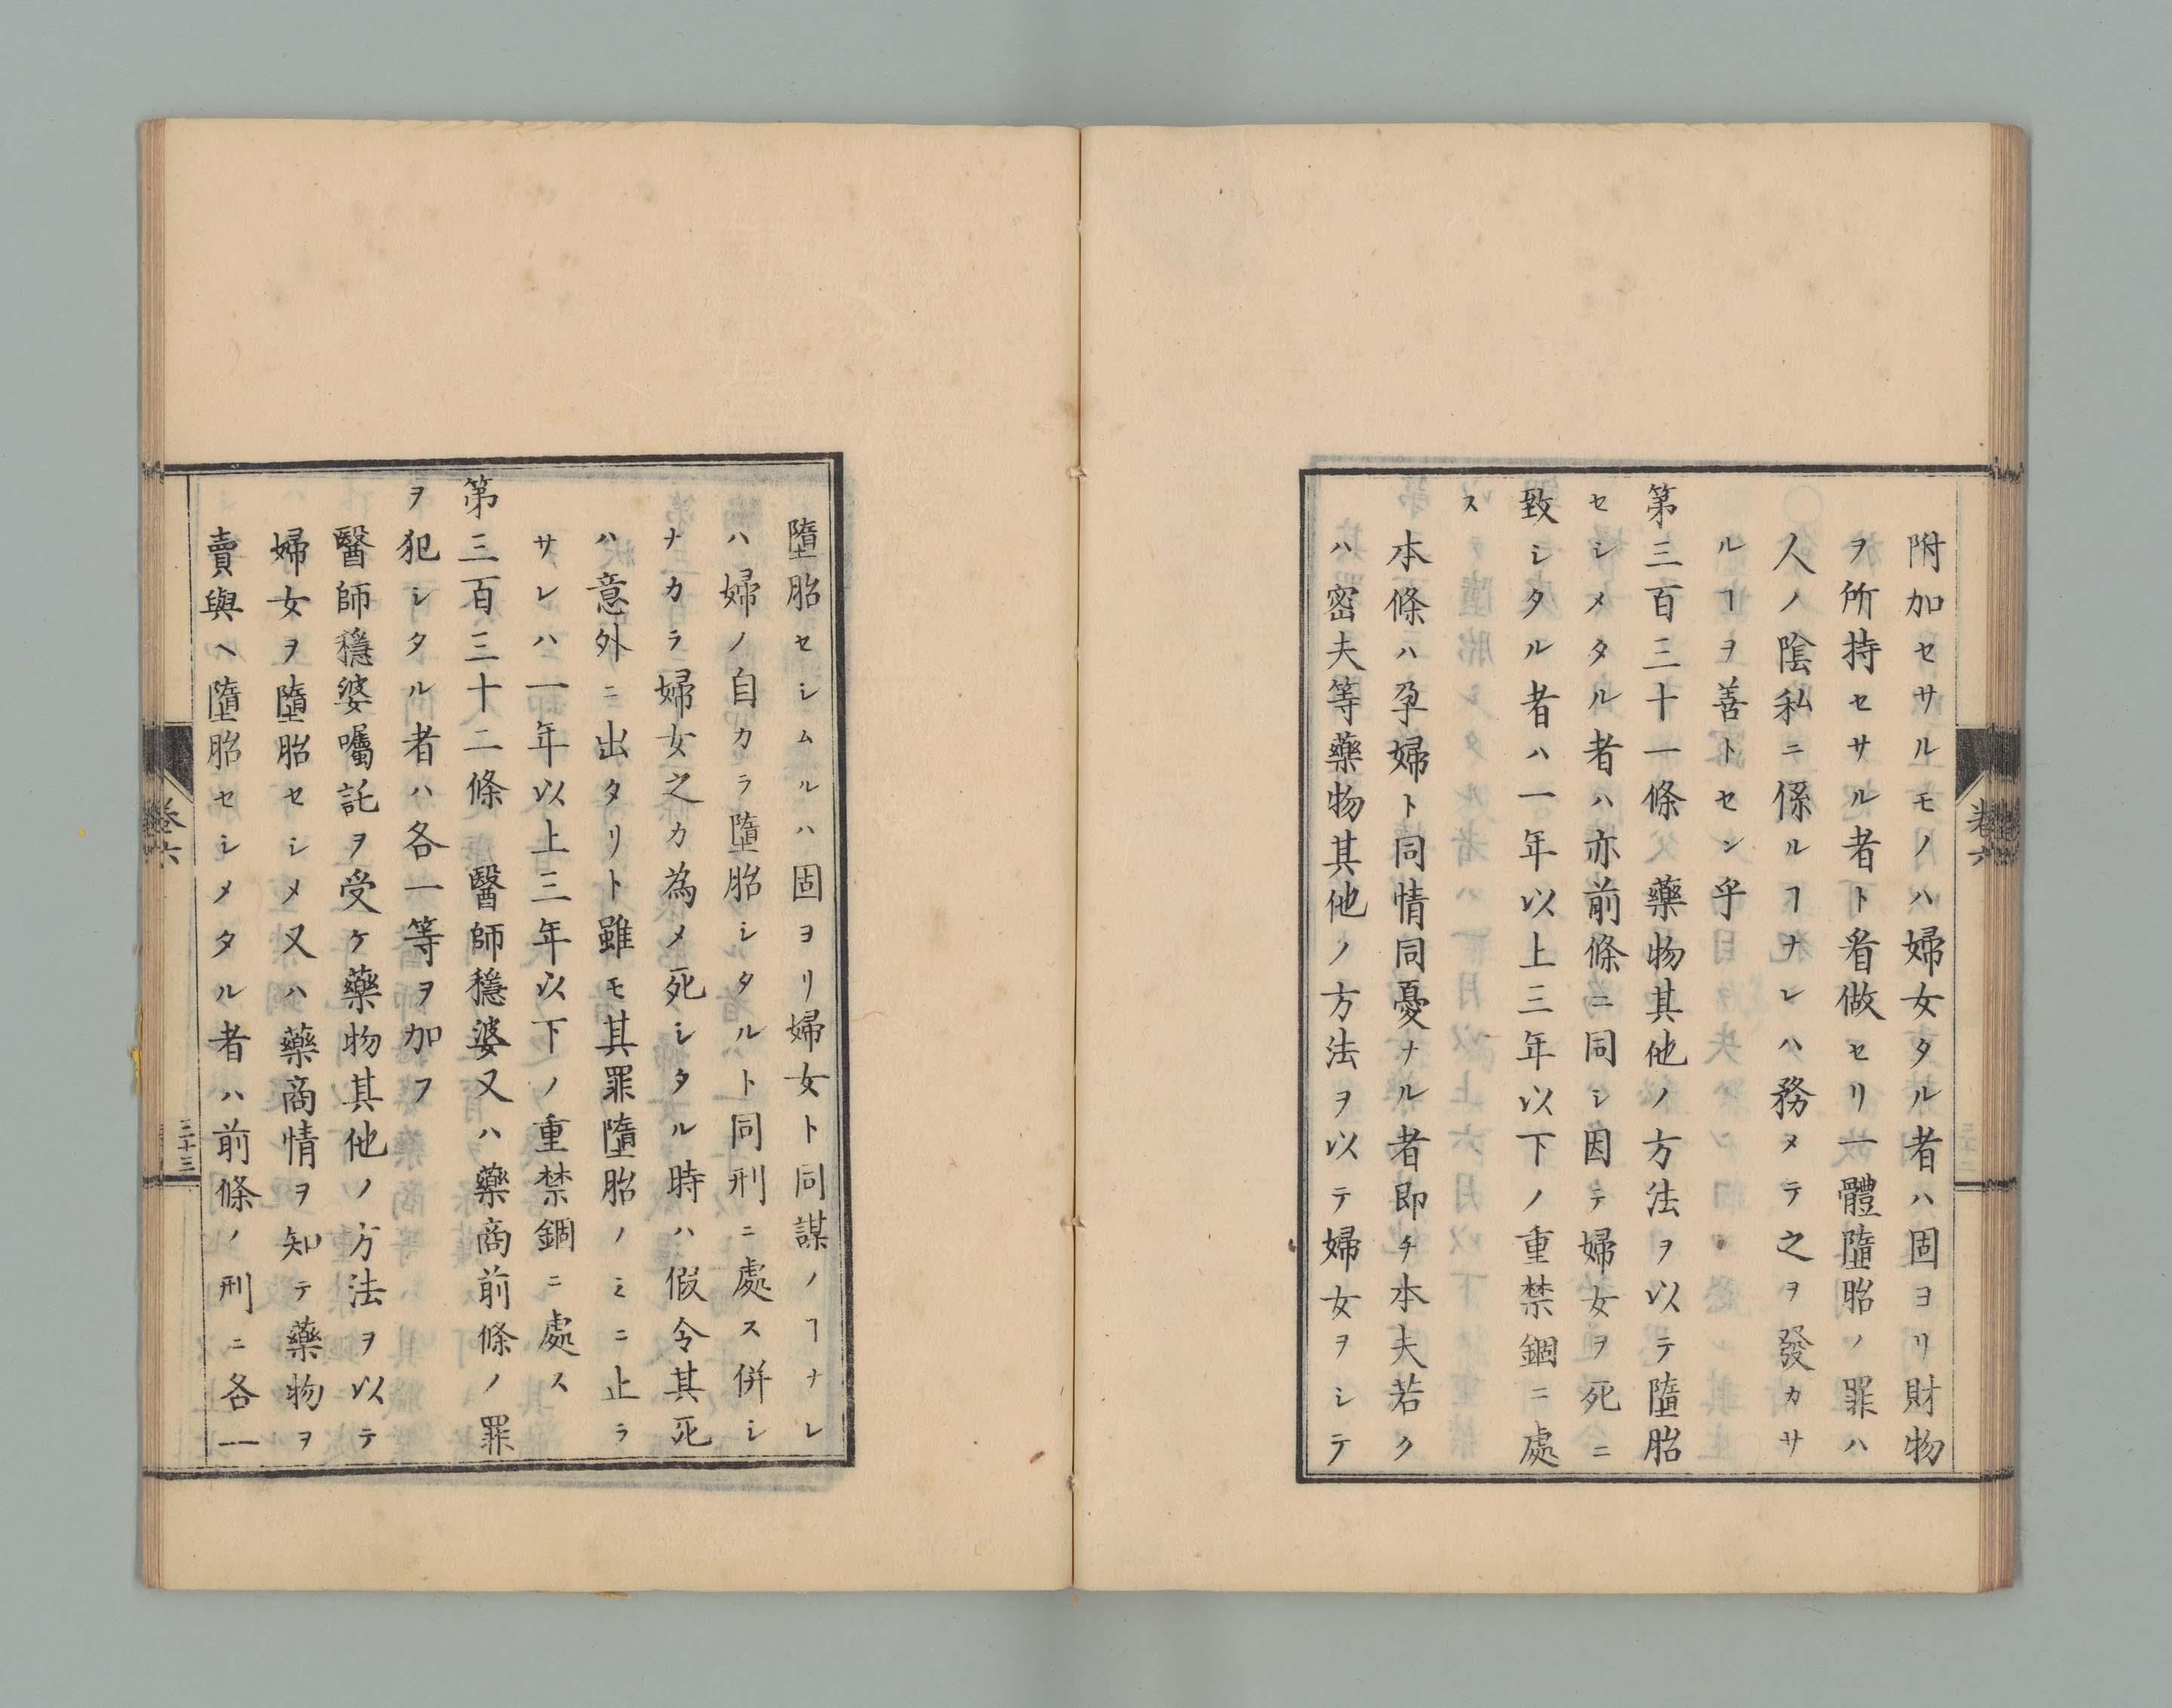 附加セサルモノハ婦女タル者ハ固ヨリ財物
ヲ所持セサル者ト看做セリ一體墮胎ノ罪ハ
人ノ陰私ニ係ルヿナレハ務メテ之ヲ發カサ
ルヿヲ善トセン乎
第三百三十一條 藥物其他ノ方法ヲ以テ墮胎
セシメタル者ハ亦前條ニ同シ因テ婦女ヲ死ニ
致シタル者ハ一年以上三年以下ノ重禁錮ニ處
ス
本條ハ孕婦ト同情同憂ナル者即チ本夫若ク
ハ密夫等藥物其他ノ方法ヲ以テ婦女ヲシテ
卷六
墮胎セシムルハ固ヨリ婦女ト同謀ノヿナレ
ハ婦ノ自カラ墮胎シタルト同刑ニ處ス併シ
ナカラ婦女之カ為メ死シタル時ハ假令其死
ハ意外ニ出タリト雖モ其罪墮胎ノミニ止ラ
サレハ一年以上三年以下ノ重禁錮ニ處ス
第三百三十二條 醫師穩婆又ハ藥商前條ノ罪
ヲ犯シタル者ハ各一等ヲ加フ
醫師穩婆囑託ヲ受ケ藥物其他ノ方法ヲ以テ
婦女ヲ墮胎セシメ又ハ藥商情ヲ知テ藥物ヲ
賣與ヘ墮胎セシメタル者ハ前條ノ刑ニ各一
卷六
三十三